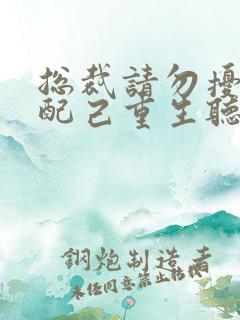 总裁請勿擾
配已重生聽
鋼炮制造者
未任同意禁止轉載